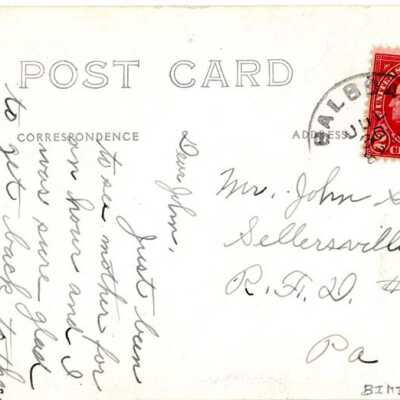 POST CARD
CORRESPONDENCE
ADDRESS
BALBO
JU
Dear John,
Just been
to see mother for
an hour and I
was sure glad
to get back to the
Mr. John S
Sellersville
R.F.D. #
Pa